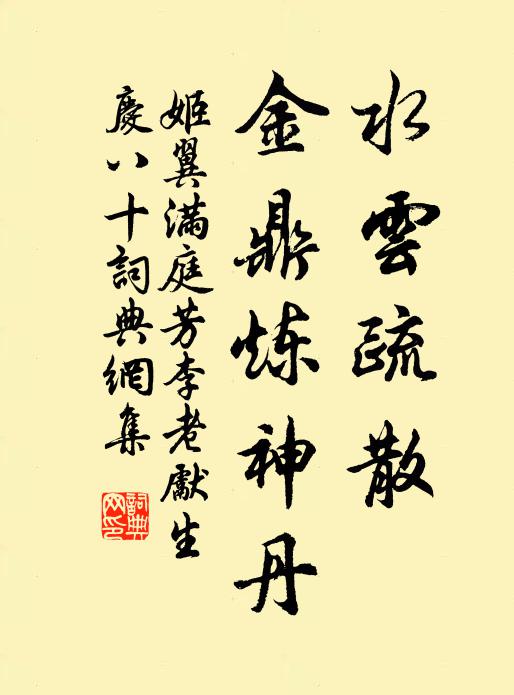 水雲疏散
金鼎炼神丹
姬翼满庭芳李老獻生
慶八十詞典網集
詞典
网印